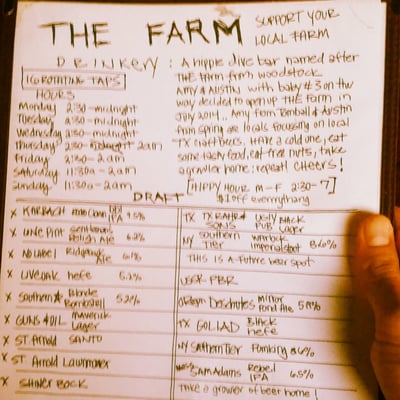 THE FARM
SUPPORT YOUR
LOCAL FARM
DRINKERY : A hippie dive bar named after
THE Farm from woodstock
16 ROTATING TAPS
AMY & AUSTIN with baby #3 on the
HOURS
way decided to open up THE Farm in
Monday 2:30-midnight
July 2014. Amy from Tomball & Austin
Tuesday 2:30-midnight
from spring are locals focussing on local
Wednesday 2:30-midnight
TX craft beers. Have a cold one, eat
Thursday 2:30- 2am
some tasty food, eat free nuts, take
Friday 2:30-2am
a growler home: repeat! CHEERS!
Saturday 11:30a-2am
Sunday 11:30a-2am
[HAPPY HOUR M-F 2:30-7]
$1 off everrything
DRAFT
X KARBACH IPA 9.5%
TX TX BAHR & SONS UGLY PUB BLACK Lager
X UNCPINT Gentleman's Relish Ale 6.2%
NY Southern Tier Warlock Imperial stout 8.6%
X NO LABEL Ridgeback Ale 6.1%
THIS IS A Future beer spot
X LIVEOAK hefe 5.2%
USA PBR
X Southern Blonde Bombshell 5.2%
Oregon Deschutes Mirror Pond Ale 5.0%
X GUNS & OIL Maverick Lager
TX GOLIAD Black hefe
X ST Arnold SANTO
NY Southern Tier Pumking 8.6%
X ST Arnold Lawnmower
Sam Adams Rebel IPA 6.5%
X SHINER BOCK
Take a growler of beer home!